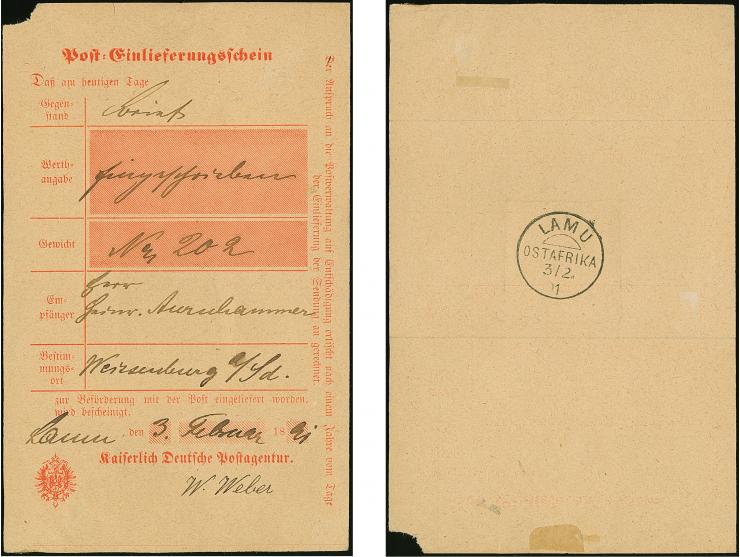 Post-Einlieferungsschein
Daß am heutigen Tage
Gegen-
stand
Brief
Werth-
angabe
eingeschrieben
Gewicht
No 202
Em-
pfänger
Herr
Heinr. Aurnhammer
Bestim-
mungs-
ort
Weissenburg a/Sd.
zur Beförderung mit der Post eingeliefert worden,
wird bescheinigt.
Lamu, den 3. Februar 1891
Kaiserlich Deutsche Postagentur.
W. Weber
Der Anspruch an die Postverwaltung auf Entschädigung erlischt nach einem Jahre vom Tage
der Einlieferung der Sendung an gerechnet.
LAMU
OSTAFRIKA
3/2.
91